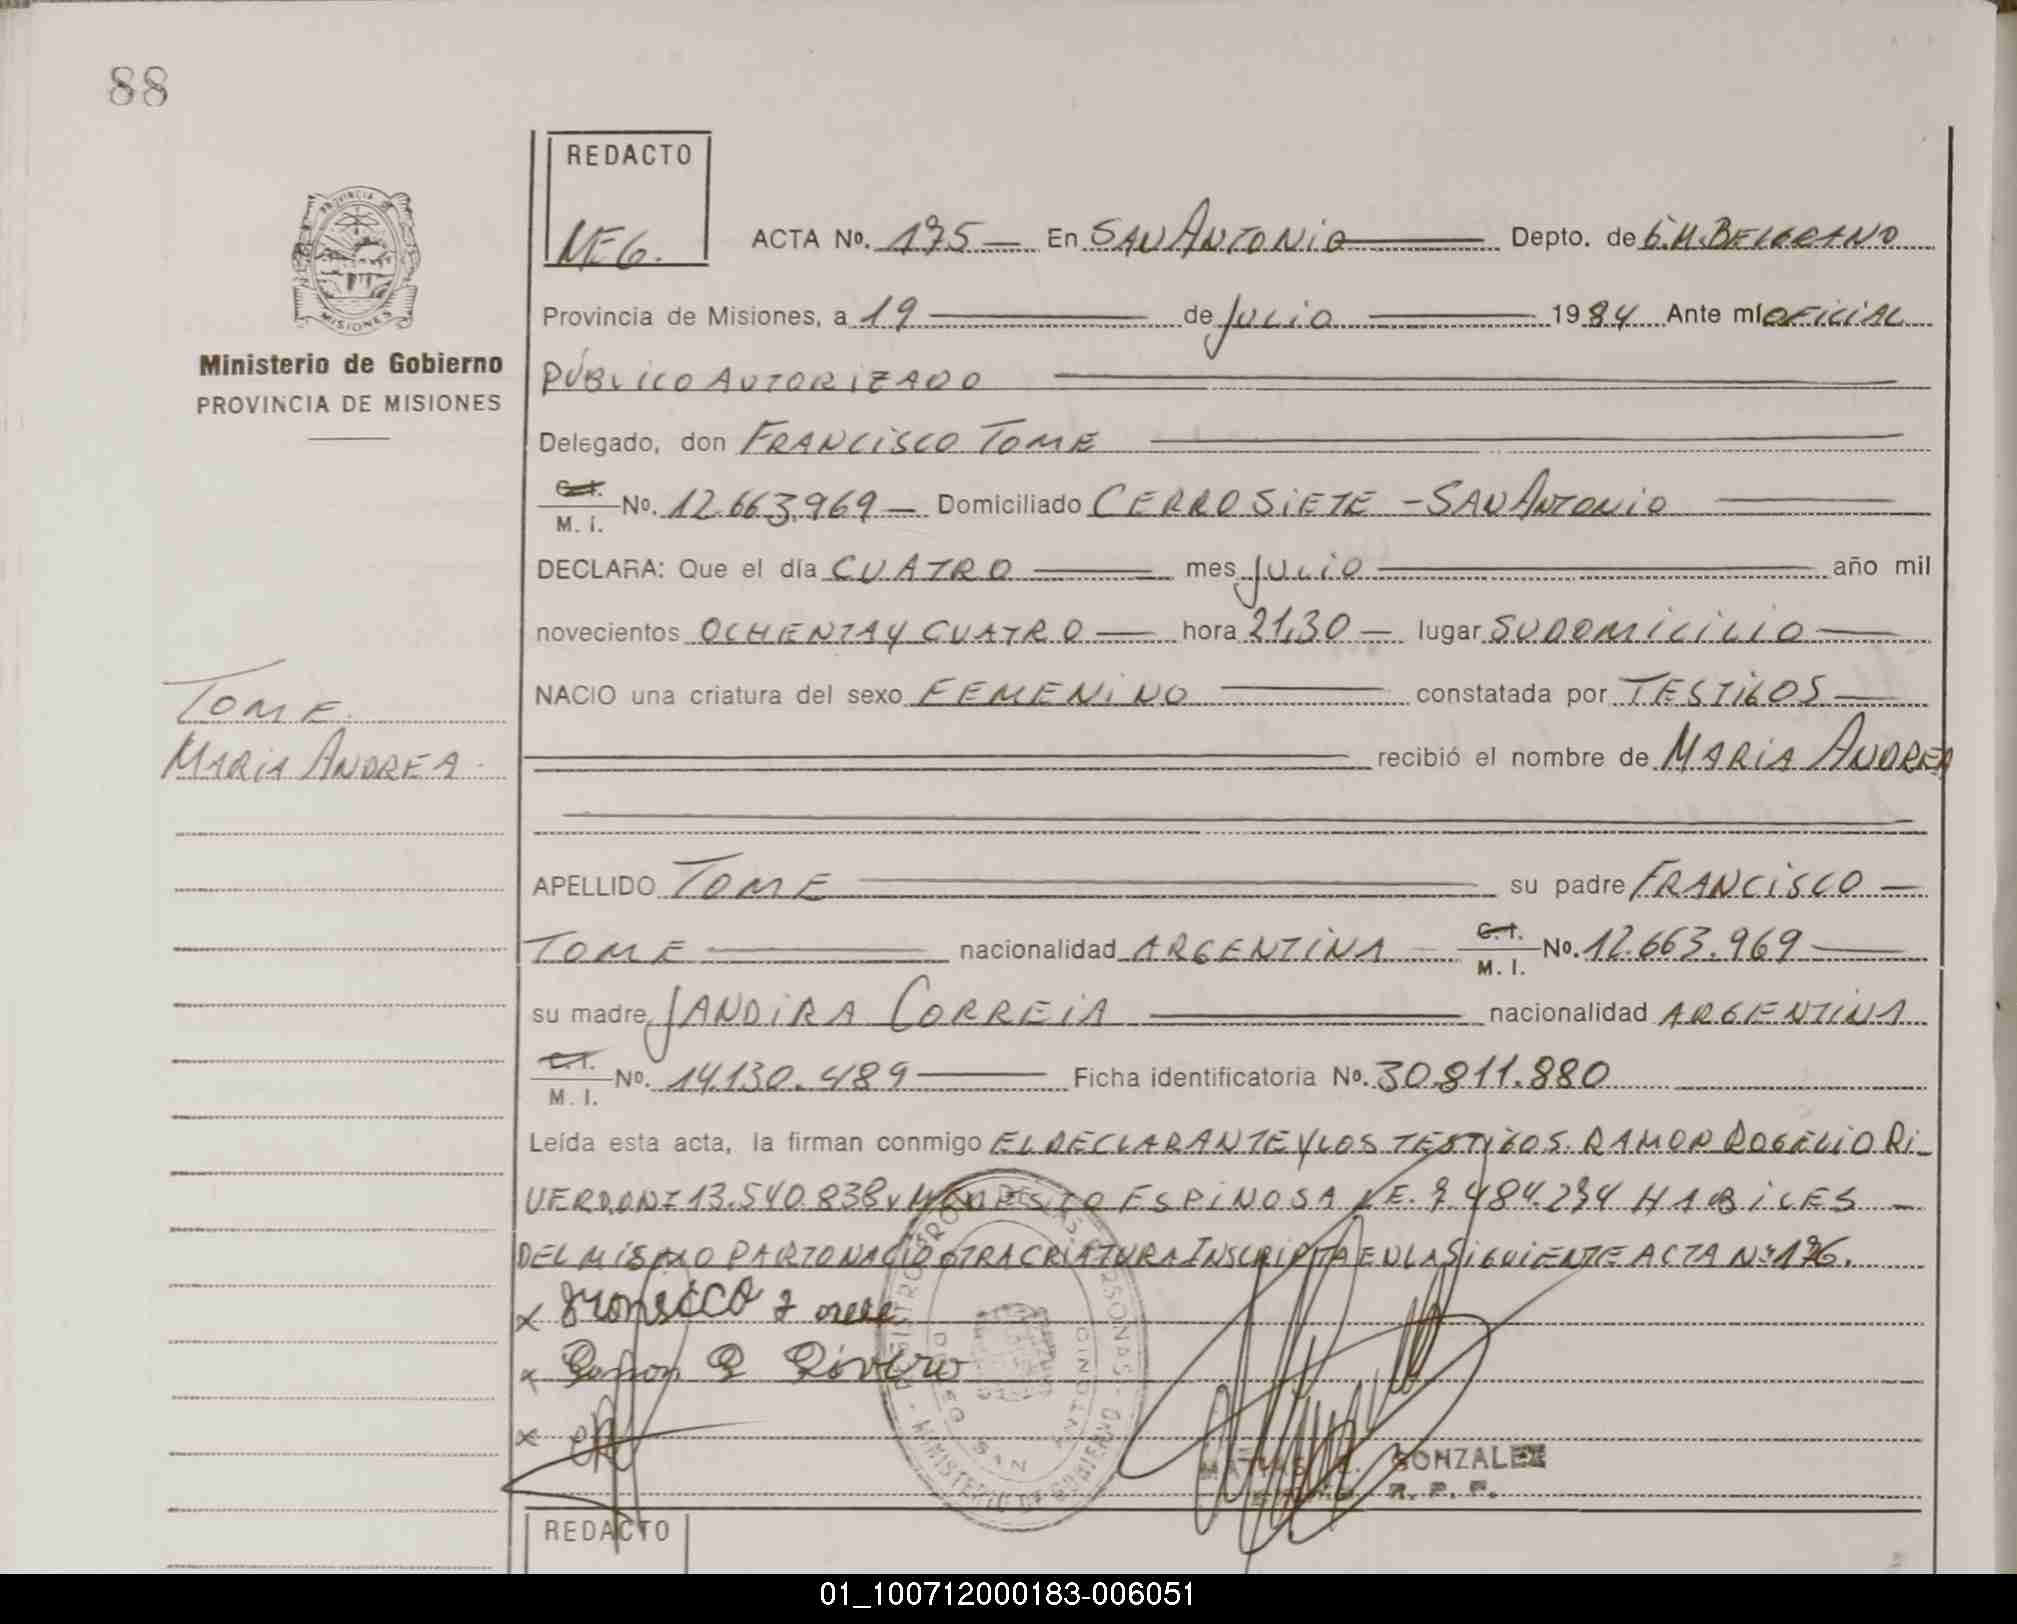 88
REDACTO
NEG.
ACTA No. 175 En SAN ANTONIO Depto. de G.M. BELGRANO
PROVINCIA DE
MISIONES
Provincia de Misiones, a 19 de JULIO 1984 Ante mí OFICIAL
Ministerio de Gobierno
PROVINCIA DE MISIONES
PÚBLICO AUTORIZADO
Delegado, don FRANCISCO TOME
C.I.
M. I. No. 12.663.969 Domiciliado CERRO SIETE - SAN ANTONIO
DECLARA: Que el día CUATRO mes JULIO año mil
novecientos OCHENTA Y CUATRO hora 21,30 lugar SU DOMICILIO
NACIO una criatura del sexo FEMENINO constatada por TESTIGOS
TOME
MARIA ANDREA
recibió el nombre de MARIA ANDREA
APELLIDO TOME su padre FRANCISCO
TOME nacionalidad ARGENTINA C.I. M. I. No. 12.663.969
su madre JANDIRA CORREIA nacionalidad ARGENTINA
C.I.
M. I. No. 14.130.489 Ficha identificatoria No. 30.811.880
Leída esta acta, la firman conmigo EL DECLARANTE Y LOS TESTIGOS. RAMON ROGELIO RI-
VERO DNI 13.540.838 Y ESPINOSA L.E. 7.484.234 HABILES
DEL MISMO PARTO NACIO OTRA CRIATURA INSCRIPTA EN LA SIGUIENTE ACTA Nº 176.
x Francisco Tome
x Ramon R Rivero
x
REGISTRO PROV. DE LAS PERSONAS - MINISTERIO DE GOBIERNO
SAN ANTONIO
MATIAS GONZALEZ
REDACTO
01_100712000183-006051